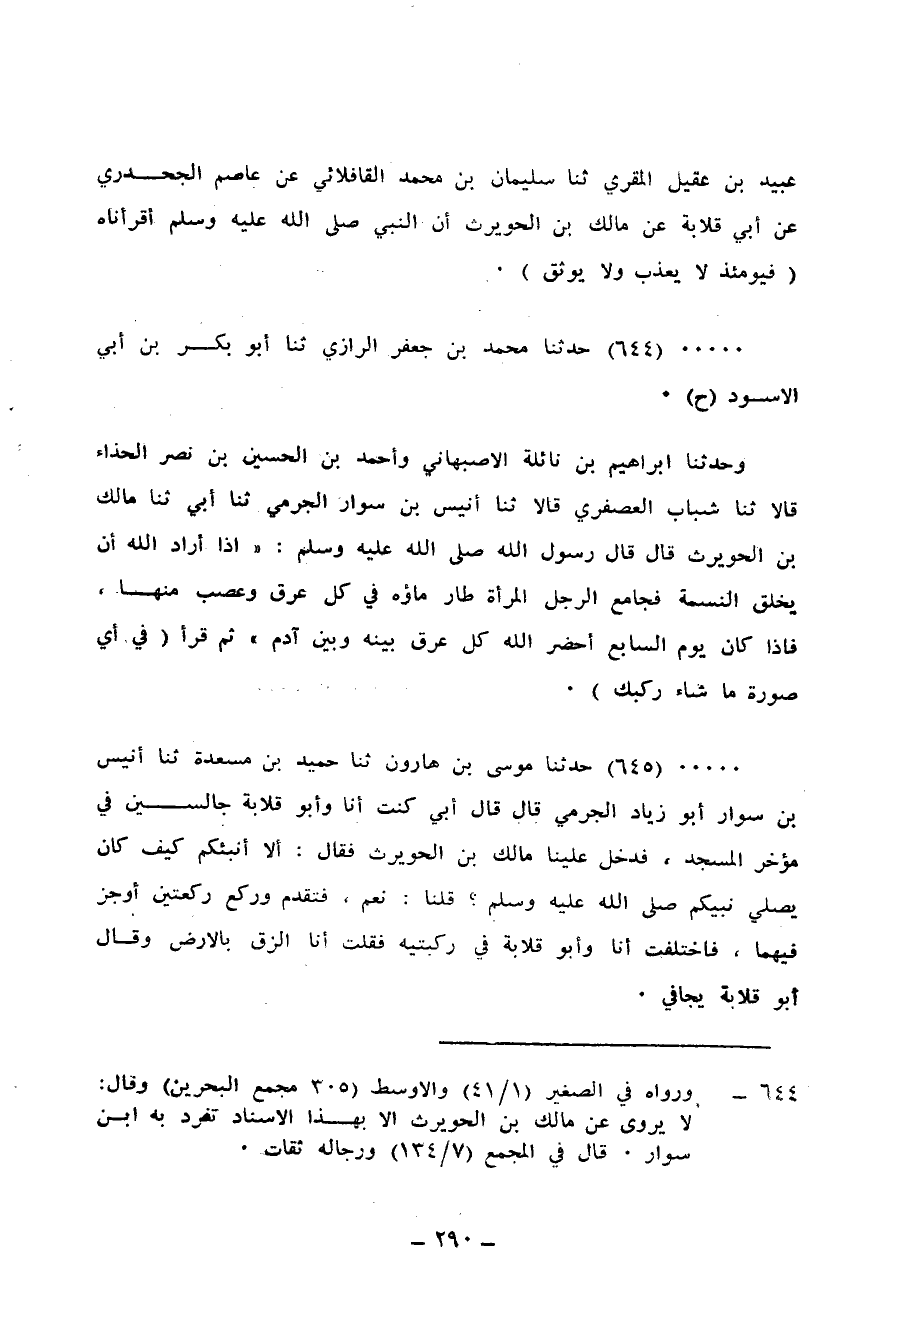 عبيد بن عقيل المقري ثنا سليمان بن محمد القافلائي عن عاصم الجحـــدري
عن أبي قلابة عن مالك بن الحويرث أن النبي صلى الله عليه وسلم أقرأناه
( فيومئذ لا يعذب ولا يوثق ) ٠
٠٠٠٠٠ (٦٤٤) حدثنا محمد بن جعفر الرازي ثنا أبو بكـــر بن أبي
الاســود (ح) ٠
وحدثنا ابراهيم بن نائلة الاصبهاني وأحمد بن الحسين بن نصر الحذاء
قالا ثنا شباب العصفري قالا ثنا أنيس بن سوار الجرمي ثنا أبي ثنا مالك
بن الحويرث قال قال رسول الله صلى الله عليه وسلم : « اذا أراد الله أن
يخلق النسمة فجامع الرجل المرأة طار ماؤه في كل عرق وعصب منهـــا ،
فاذا كان يوم السابع أحضر الله كل عرق بينه وبين آدم » ثم قرأ ( في أي
صورة ما شاء ركبك ) ٠
٠٠٠٠٠ (٦٤٥) حدثنا موسى بن هارون ثنا حميد بن مسعدة ثنا أنيس
بن سوار أبو زياد الجرمي قال قال أبي كنت أنا وأبو قلابة جالســـين في
مؤخر المسجد ، فدخل علينا مالك بن الحويرث فقال : ألا أنبئكم كيف كان
يصلي نبيكم صلى الله عليه وسلم ؟ قلنا : نعم ، فتقدم وركع ركعتين أوجز
فيهما ، فاختلفت أنا وأبو قلابة في ركبتيه فقلت أنا الزق بالارض وقــال
أبو قلابة يجافي ٠
٦٤٤ – ورواه في الصغير (٤١/١) والاوسط (٣٠٥ مجمع البحرين) وقال:
لا يروى عن مالك بن الحويرث الا بهـــذا الاسناد تفرد به ابـن
سوار ٠ قال في المجمع (١٣٤/٧) ورجاله ثقات ٠
– ٢٩٠ –